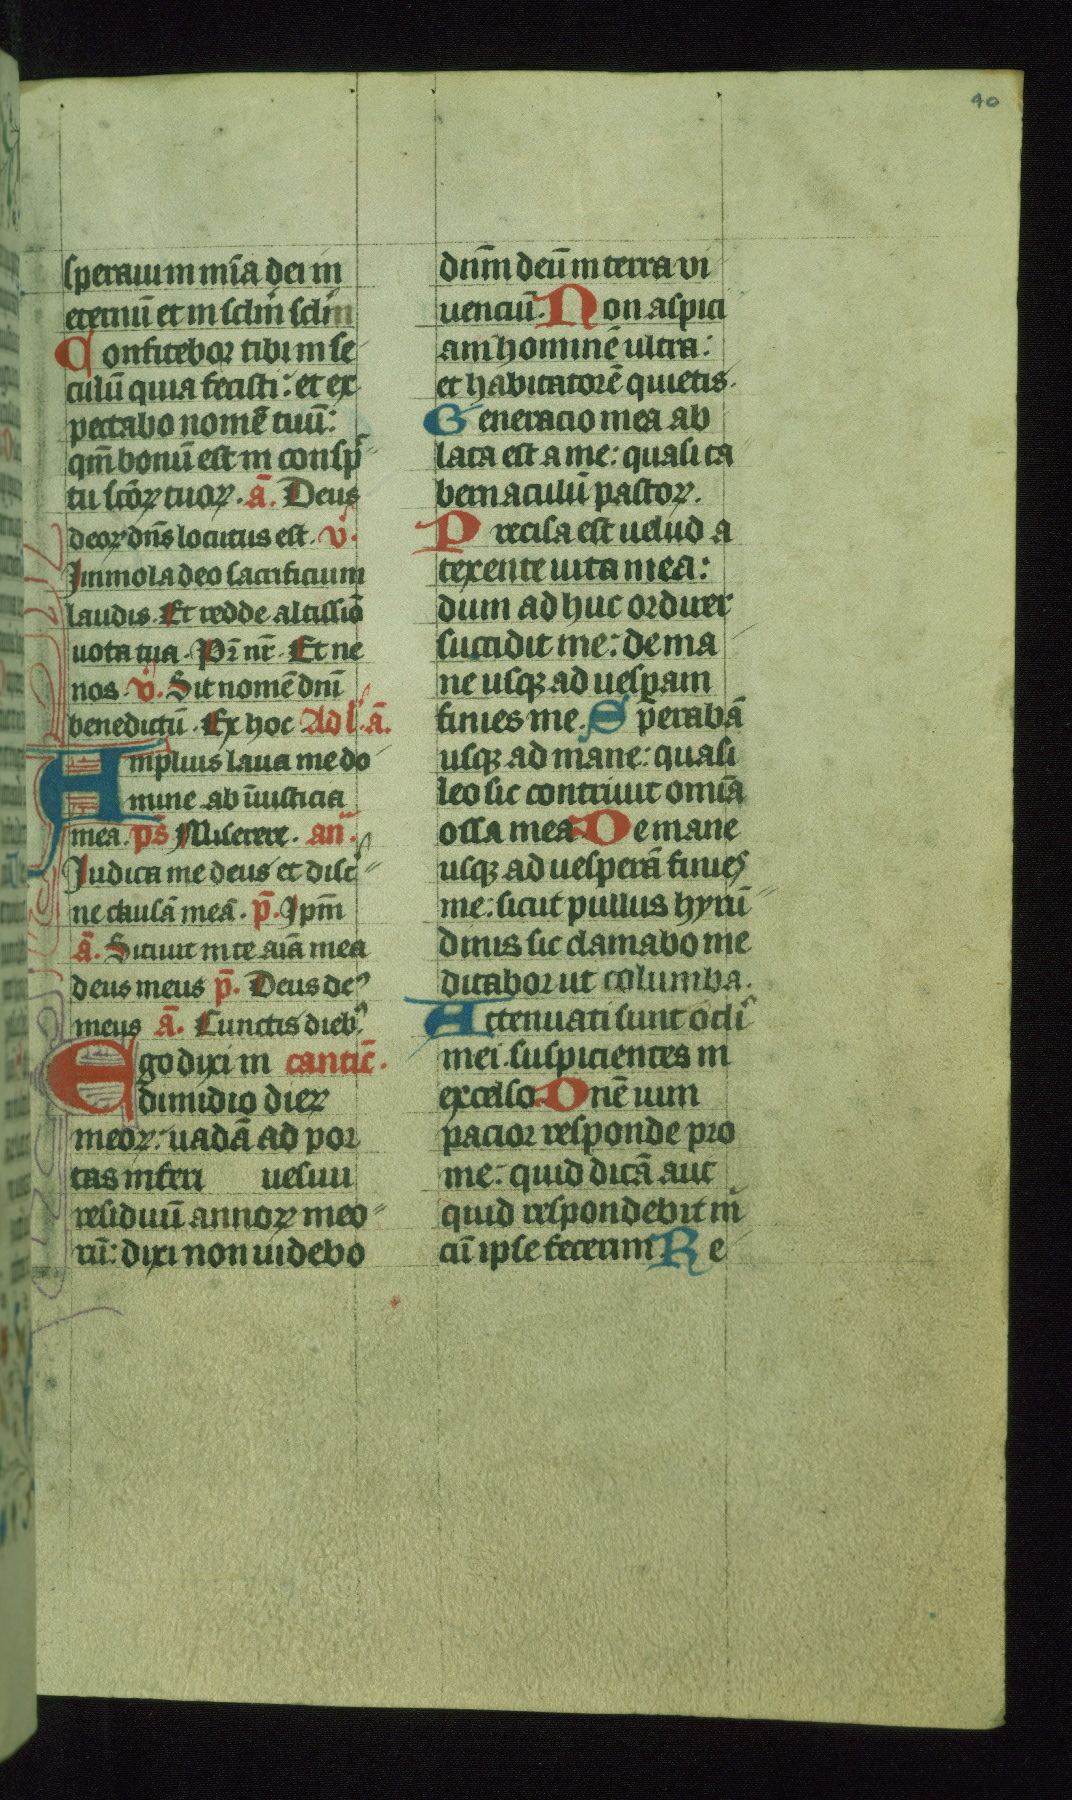 40
speraui in mīa dei in
eternū et in sclm̄ sclī
Confitebor tibi in se
culū quia fecisti: et ex
pectabo nomē tuū:
qm̄ bonū est in consp̄
tu scōꝝ tuoꝝ. ā. Deus
deoꝝ dn̄s locutus est. v̄.
Immola deo sacrificium
laudis. Et redde altissiō
uota tua. Pr̄ nr̄. Et ne
nos. v̄. Sit nomē dn̄i
benedictū. Ex hoc Ad l. ā.
Amplius laua me do
mine ab iniusticia
mea. ps̄ Miserere. an̄.
Iudica me deus et disc̄
ne causā meā. p̄. Ipm̄
ā. Sitiuit in te aīa mea
deus meus p̄. Deus de
meus ā. Cunctis dieb
Ego dixi in cantic̄.
dimidio dieꝝ
meoꝝ: uadā ad por
tas inferi uesiui
residuū annoꝝ meo
rū: dixi non uidebo
dn̄m deū in terra vi
uenciū. Non aspici
am hominē ultra:
et habitatorē quietis.
Generacio mea ab
lata est a me: quasi ta
bernaculū pastoꝝ.
Precisa est uelud a
texente uita mea:
dum ad huc ordirer
succidit me: de ma
ne usqꝫ ad uesꝑam
finies me. Sperabā
usqꝫ ad mane: quasi
leo sic contriuit omīa
ossa mea De mane
usqꝫ ad uesperā finies
me: sicut pullus hyrū
dinis sic clamabo me
ditabor ut columba.
Attenuati sunt ocli
mei. suspicientes in
excelso Dnē uim
pacior responde pro
me: quid dicā aut
quid respondebit m̄
cū ipse fecerim Re